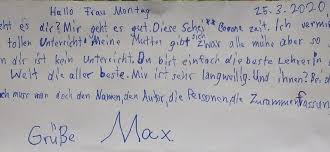 Hallo Frau Montag 25.3.2020
geht es dir? Mir geht es gut. Diese Scheiß** Corona zeit. Ich vermi
tollen Unterricht. Meine Mutter gibt sich zwar alle mühe aber so
n dir ist kein Unterricht. Du bist einfach die beste Lehrerin
Welt die aller beste. Mir ist sehr langweilig. Und ihnen? Bei d
ch muss man doch den Namen, den Autor, die Personen, die Zusammenfassun
Grüße Max